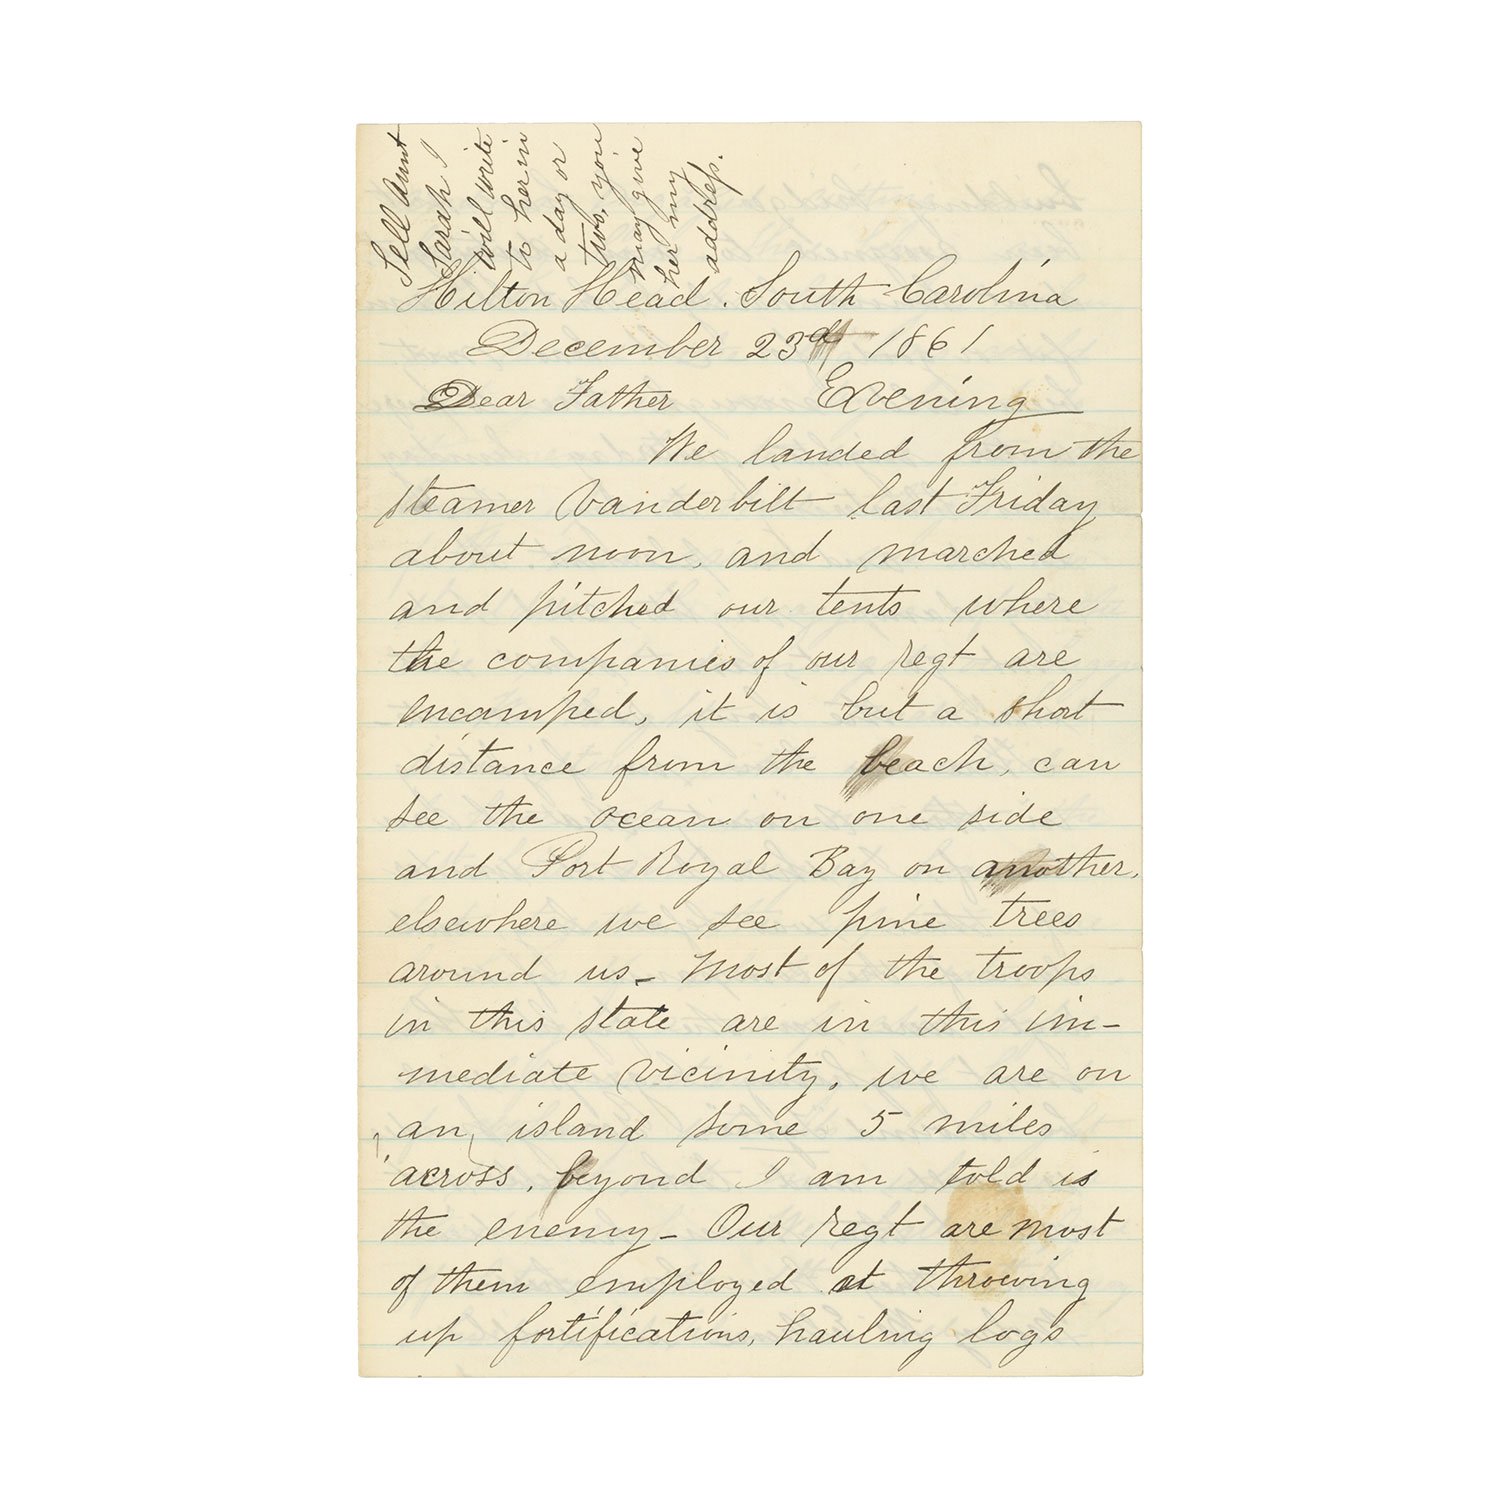 Tell Aunt
Sarah I
will write
to her in
a day or
two, you
may give
her my
address.
Hilton Head. South Carolina
December 23d 1861
Dear Father Evening
We landed from the
steamer Vanderbilt last Friday
about noon, and marched
and pitched our tents where
the companies of our regt are
encamped, it is but a short
distance from the beach, can
see the ocean on one side
and Port Royal Bay on another,
elsewhere we see pine trees
around us - Most of the troops
in this state are in this im-
mediate vicinity, we are on
an island some 5 miles
across, beyond I am told is
the enemy - Our regt are most
of them employed at throwing
up fortifications, hauling logs